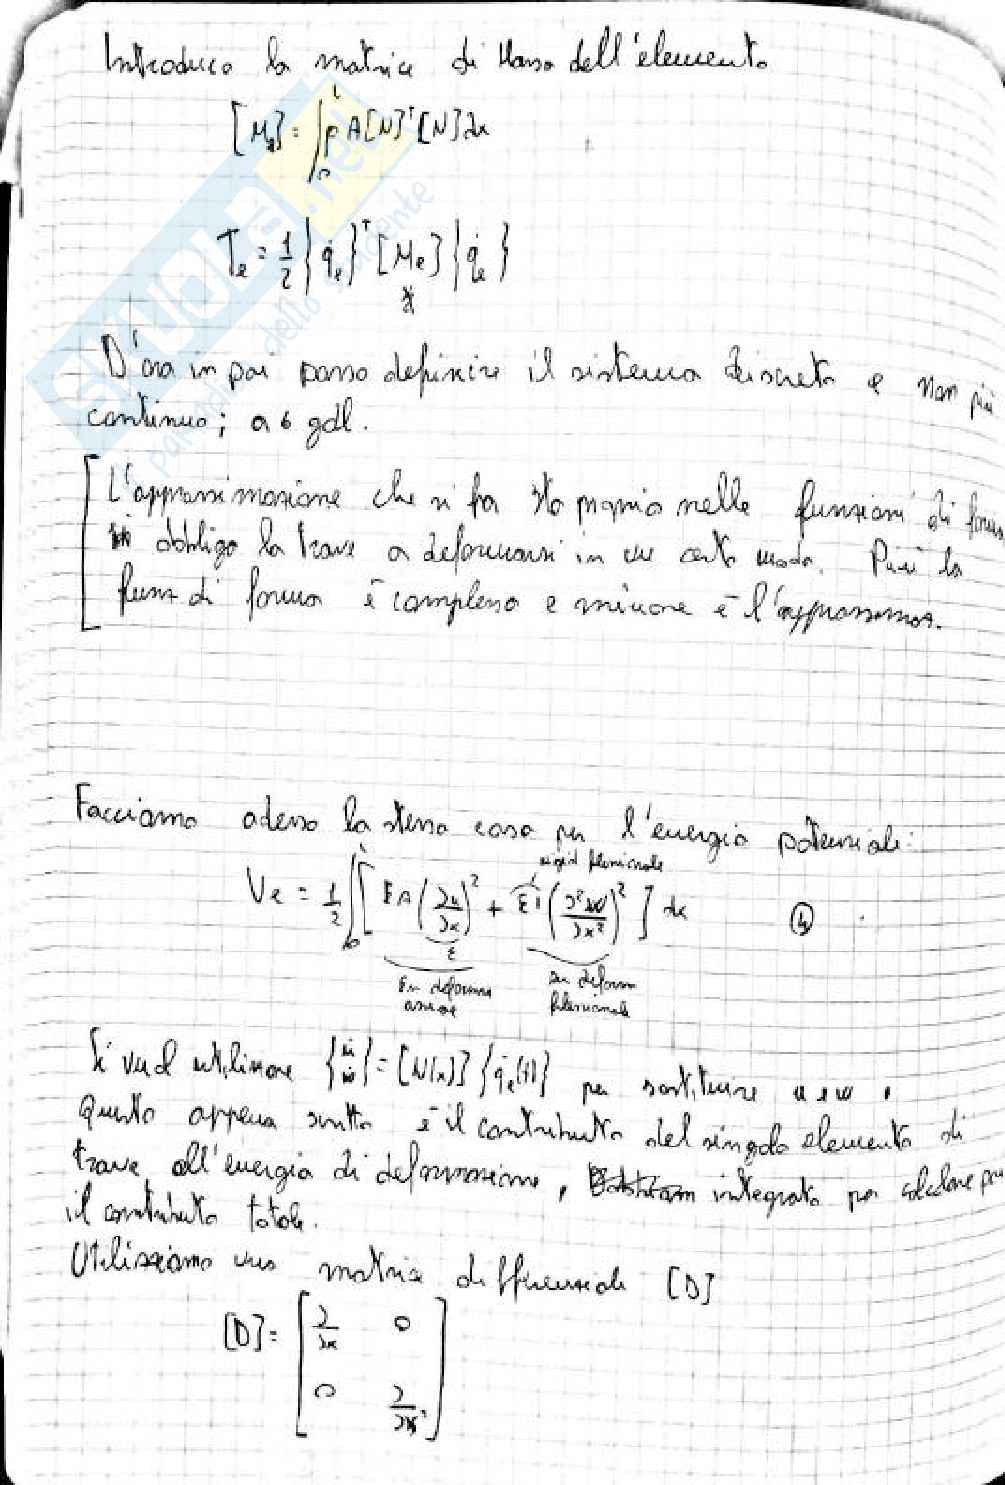 Introduco la matrice di Massa dell'elemento
[Me] = ∫₀ᴸ ρA[N]ᵀ[N]dx
Te = 1/2 {q̇e}ᵀ [Me] {q̇e}
D'ora in poi posso definire il sistema discreto e non più
continuo; a 6 gdl.
L'approssimazione che si fa sta proprio nelle funzioni di forma
obbligo la trave a deformarsi in un certo modo. Più la
funz di forma è complessa e minore è l'approssimaz.
Facciamo adesso la stessa cosa per l'energia potenziale:
rigid flessionale
Ve = 1/2 ∫₀ᴸ [EA(∂u/∂x)² + EI(∂²w/∂x²)²] dx (4)
ε
En deformaz assiale
en deform flessionale
Si vuol utilizzare {u̇ ẇ} = [N(x)] {q̇e(t)} per sostituire u e w.
Questo appena scritto è il contributo del singolo elemento di
trave all'energia di deformazione, integrato per calcolare poi
il contributo totale.
Utilizziamo una matrice differenziale [D]
[D] = [∂/∂x 0
0 ∂/∂x²]
SKUOLA.net
paradiso dello studente